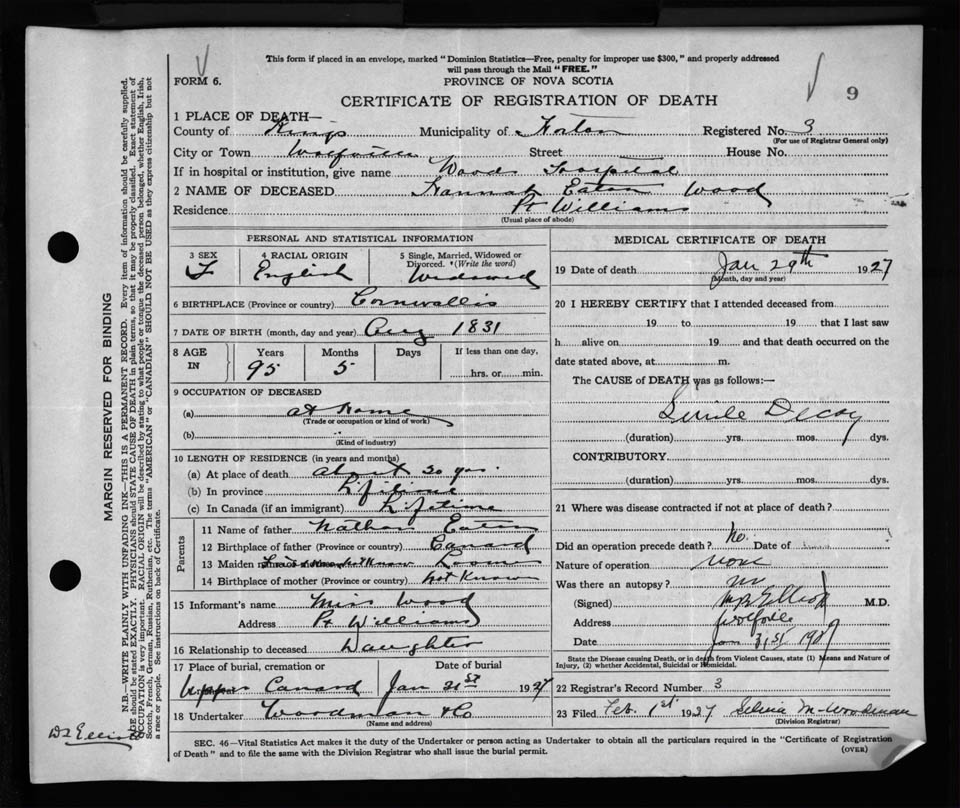 This form if placed in an envelope, marked "Dominion Statistics—Free, penalty for improper use $300," and properly addressed
will pass through the Mail "FREE."
FORM 6.
PROVINCE OF NOVA SCOTIA
9
CERTIFICATE OF REGISTRATION OF DEATH
1 PLACE OF DEATH—
County of Kings Municipality of Horton Registered No. 3
(For use of Registrar General only)
City or Town Wolfville Street House No.
If in hospital or institution, give name Woods Hospital
2 NAME OF DECEASED Hannah Eaton Wood
Residence Pt Williams
(Usual place of abode)
PERSONAL AND STATISTICAL INFORMATION
3 SEX 4 RACIAL ORIGIN 5 Single, Married, Widowed or Divorced. (Write the word)
F English Widowed
6 BIRTHPLACE (Province or country) Cornwallis
7 DATE OF BIRTH (month, day and year) Aug 1831
8 AGE IN Years Months Days If less than one day,
95 5 hrs. or min.
9 OCCUPATION OF DECEASED
(a) at home
(Trade or occupation or kind of work)
(b)
(Kind of industry)
10 LENGTH OF RESIDENCE (in years and months)
(a) At place of death about 30 yrs.
(b) In province Lifetime
(c) In Canada (if an immigrant) Lifetime
Parents
11 Name of father Nathan Eaton
12 Birthplace of father (Province or country) Canard
13 Maiden
14 Birthplace of mother (Province or country) not Known
15 Informant's name Miss Wood
Address Pt Williams
16 Relationship to deceased Daughter
17 Place of burial, cremation or Date of burial
Upper Canard Jan 31st 1927
18 Undertaker Woodman & Co
(Name and address)
MEDICAL CERTIFICATE OF DEATH
19 Date of death Jan 29th 1927
(Month, day and year)
20 I HEREBY CERTIFY that I attended deceased from
19 to 19 that I last saw
h alive on 19 and that death occurred on the
date stated above, at m.
The CAUSE of DEATH was as follows:—
Senile Decay
(duration) yrs. mos. dys.
CONTRIBUTORY
(duration) yrs. mos. dys.
21 Where was disease contracted if not at place of death?
Did an operation precede death? No. Date of
Nature of operation none
Was there an autopsy? no
(Signed) Elliott M.D.
Address Wolfville
Date Jan 31st 1927
State the Disease causing Death, or in death from Violent Causes, state (1) Means and Nature of
Injury, (2) whether Accidental, Suicidal or Homicidal.
22 Registrar's Record Number 3
23 Filed Feb. 1st 1927 Woodman
(Division Registrar)
SEC. 46—Vital Statistics Act makes it the duty of the Undertaker or person acting as Undertaker to obtain all the particulars required in the "Certificate of Registration
of Death" and to file the same with the Division Registrar who shall issue the burial permit.
(OVER)
MARGIN RESERVED FOR BINDING
N.B.—WRITE PLAINLY WITH UNFADING INK—THIS IS A PERMANENT RECORD. Every item of information should be carefully supplied.
AGE should be stated EXACTLY. PHYSICIANS should STATE CAUSE OF DEATH in plain terms, so that it may be properly classified. Exact statement of
OCCUPATION is very important. RACIAL ORIGIN will be described by stating to what people or tongue the deceased person belonged, whether English, Irish,
Scotch, French, German, Russian, Ruthenian, etc. The terms "AMERICAN" or "CANADIAN" SHOULD NOT BE USED as they express citizenship but not
a race or people. See instructions on back of Certificate.
Elliott